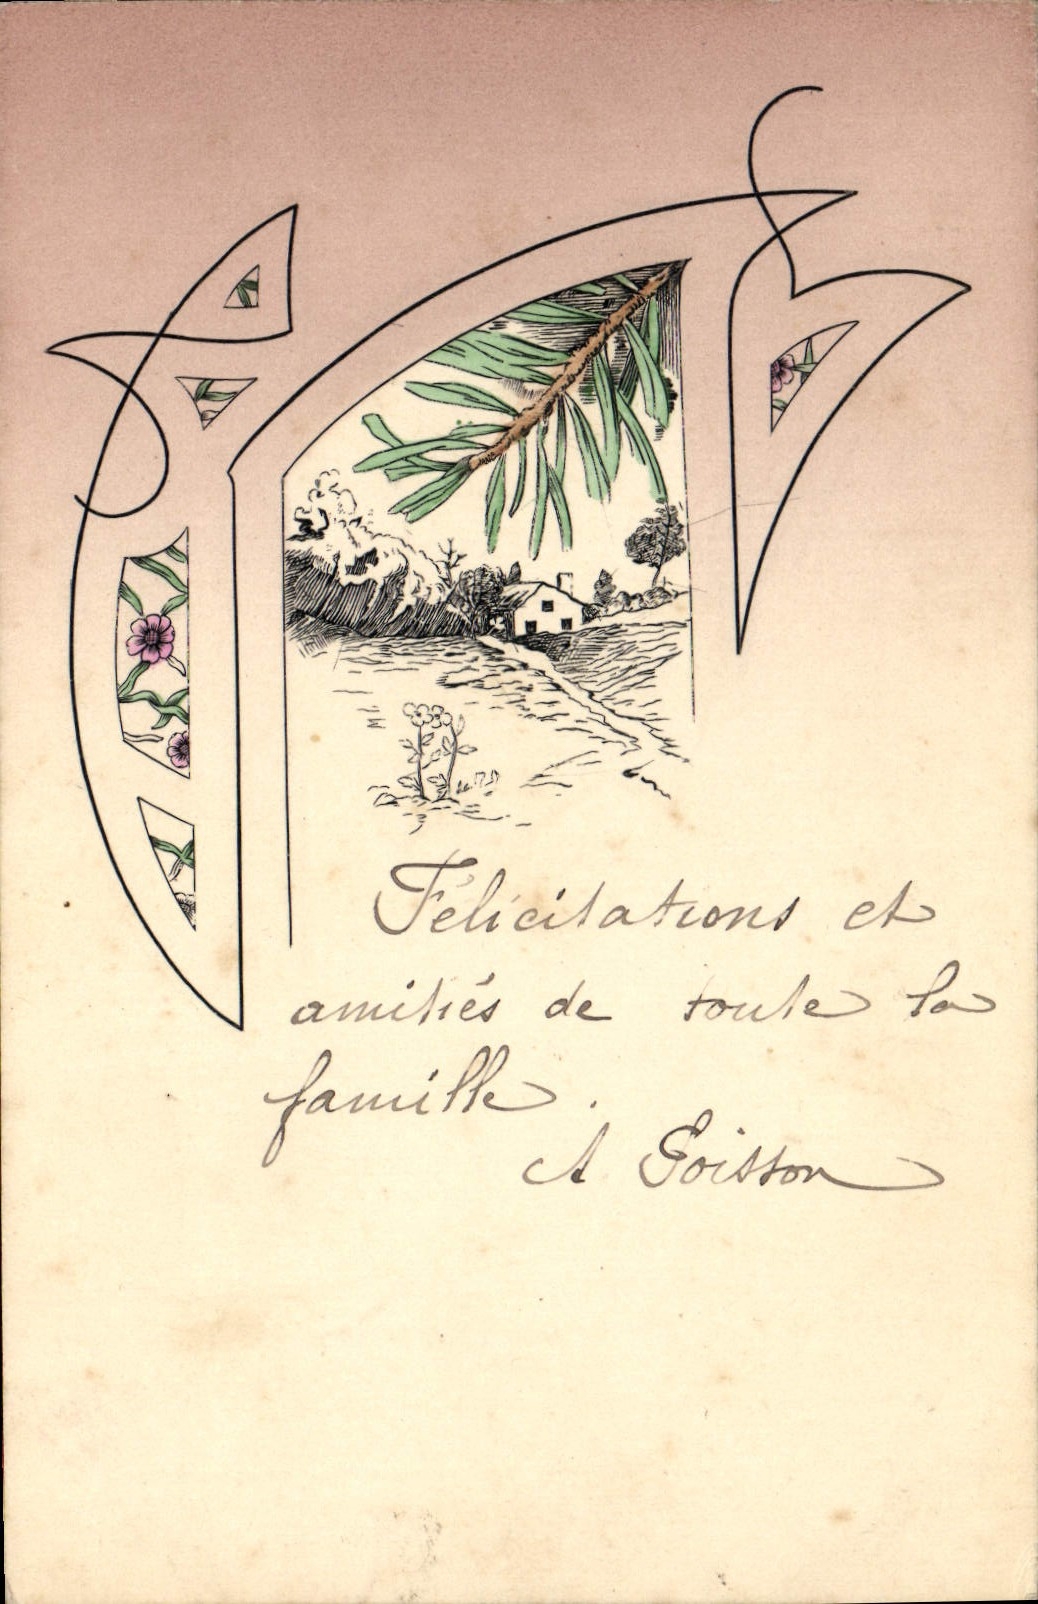 Félicitations et
amitiés de toute la
famille.
A Goisson